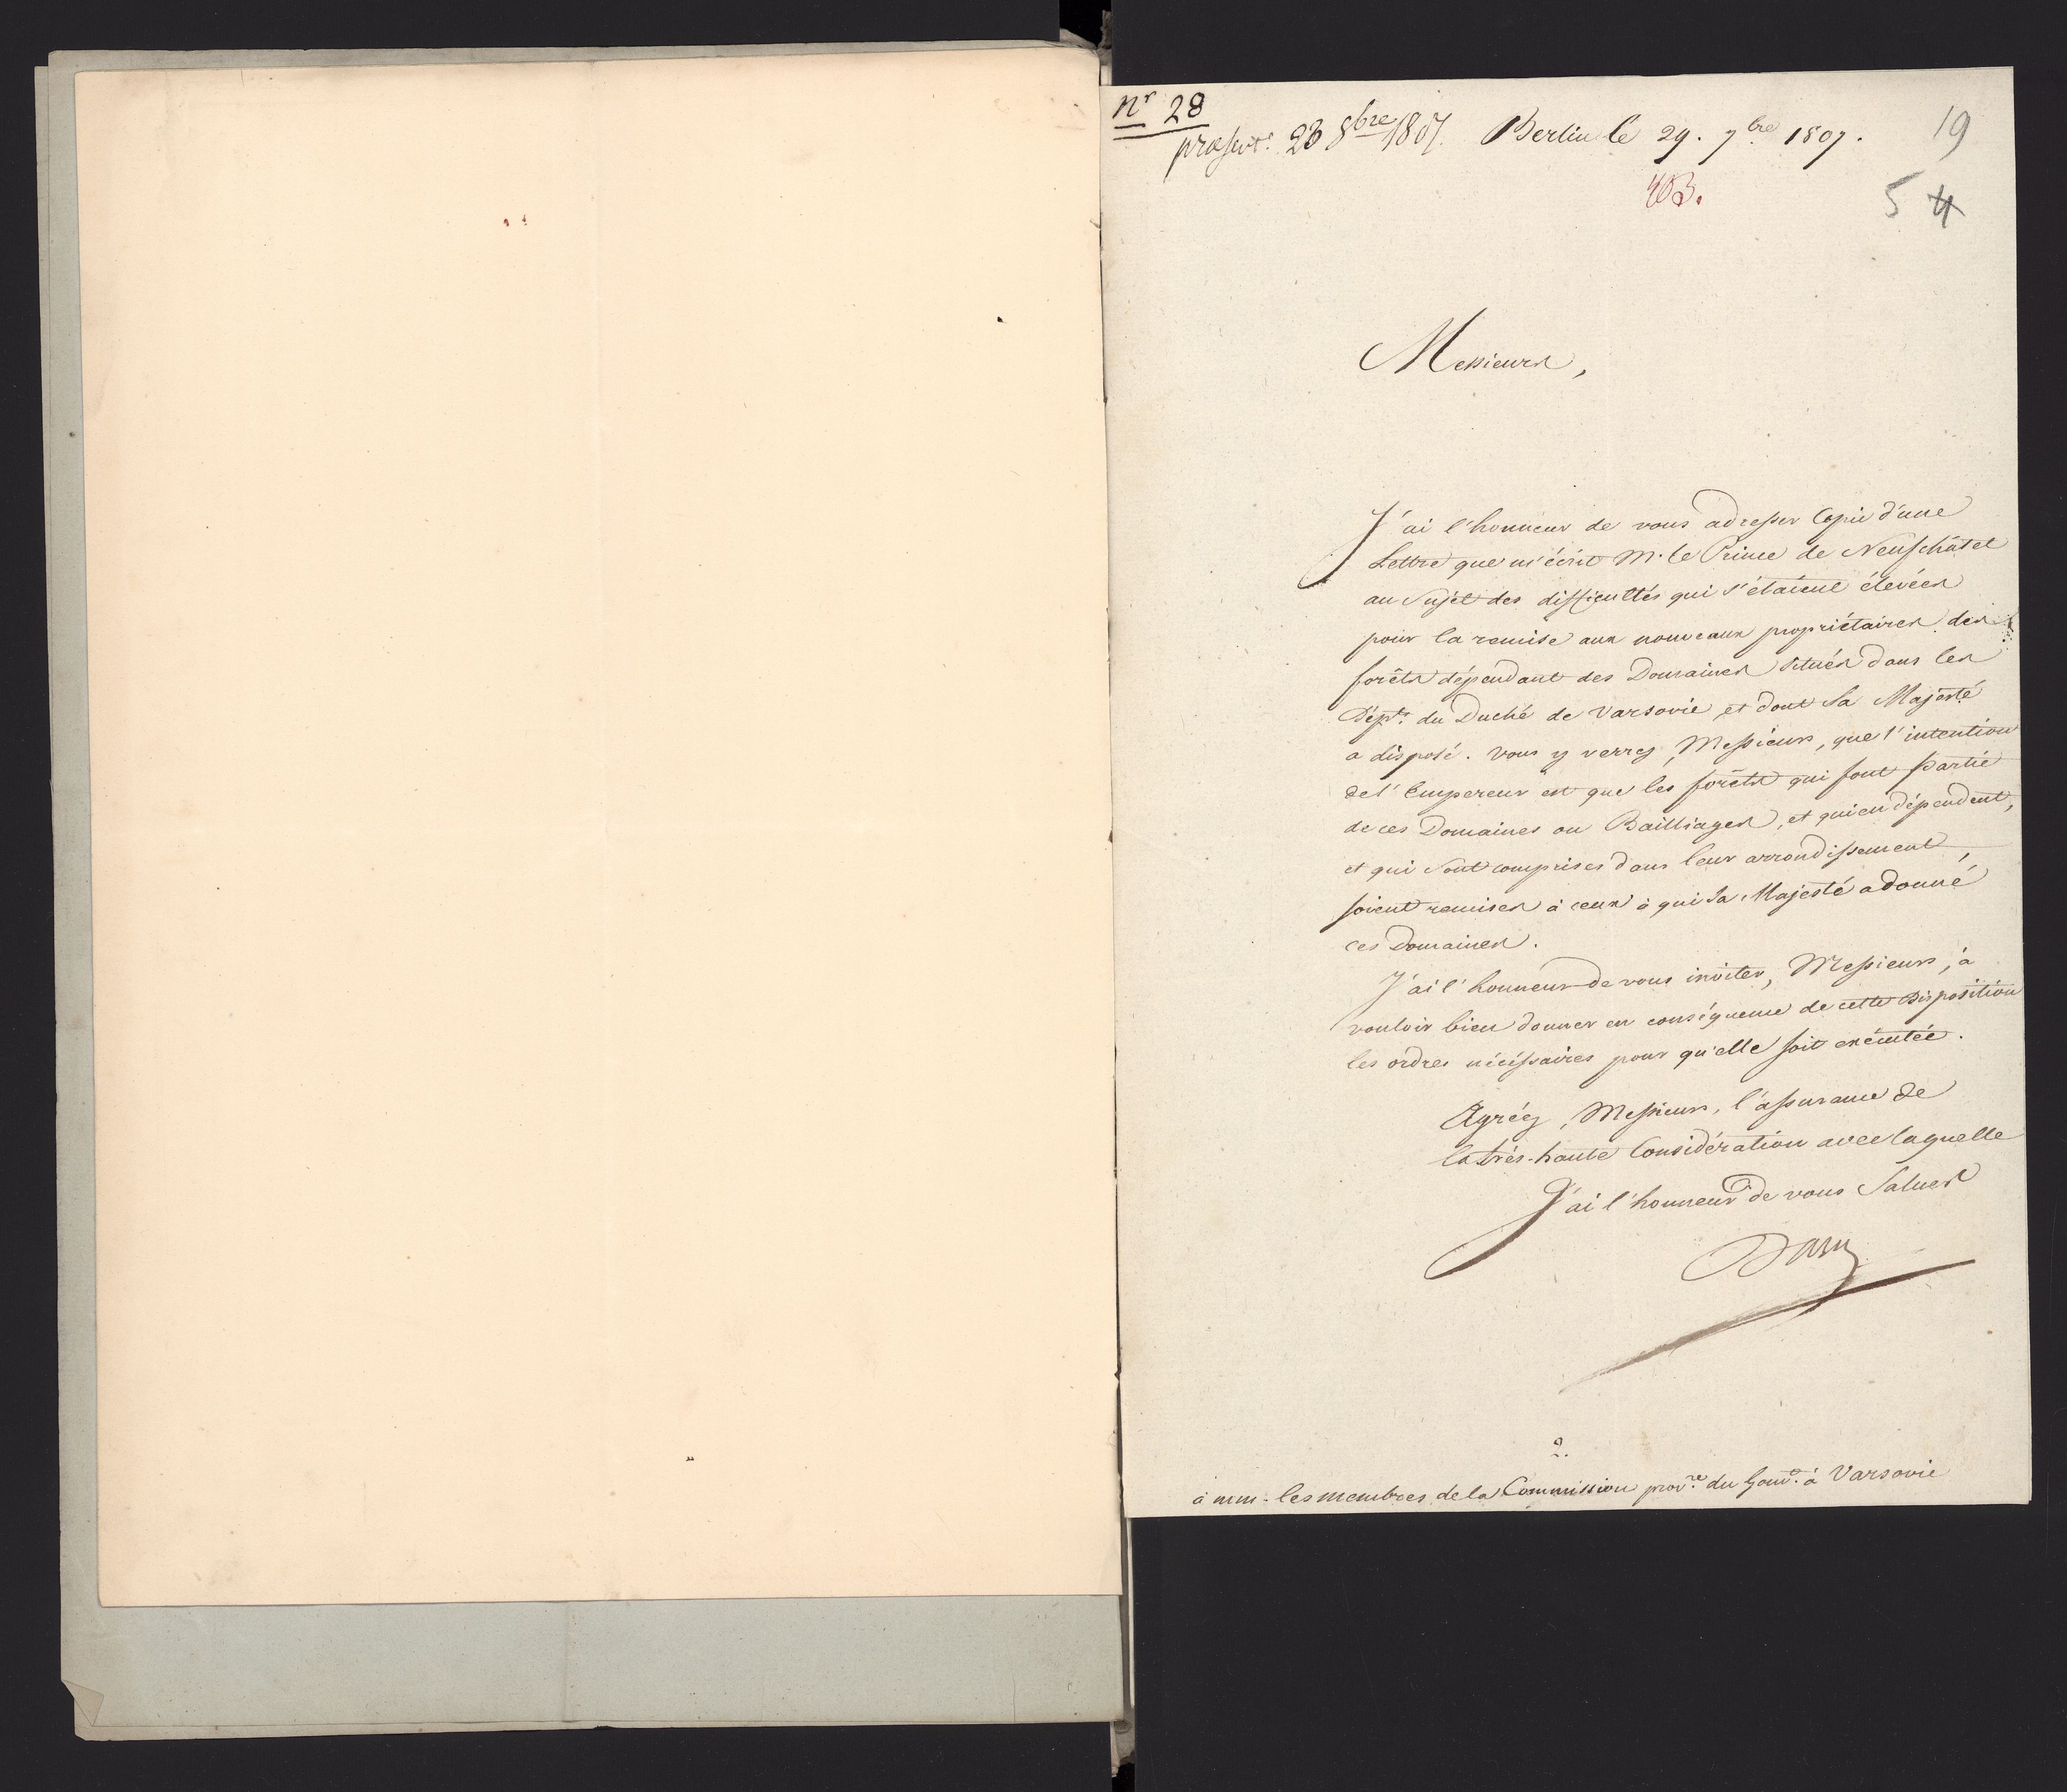 nr 28
præsent. 23 8bre 1807. Berlin le 29. 7bre 1807. 19
403.
5 4
Messieurs,
J'ai l'honneur de vous adresser Copie d'une
Lettre que m'écrit M. le Prince de Neufchâtel
au Sujet des difficultés qui s'étaient élevées
pour la remise aux nouveaux propriétaires des
forêts dépendant des Domaines Situés dans les
Dépts. du Duché de Varsovie, et dont Sa Majesté
a disposé. Vous y verrez, Messieurs, que l'intention
de l'Empereur est que les forêts qui font partie
de ces Domaines ou Bailliages, et qui en dépendent,
et qui Sont comprises dans leur arrondissement,
soient remises à ceux à qui Sa Majesté a donné
ces Domaines.
J'ai l'honneur de vous inviter, Messieurs, à
vouloir bien donner en conséquence de cette Disposition
les ordres nécéssaires pour qu'elle soit exécutée.
Agréez, Messieurs, l'assurance de
la très-haute Considération avec laquelle
J'ai l'honneur de vous Saluer
Daru
2.
à mm. les membres de la Commission provre. du Gouvt. à Varsovie